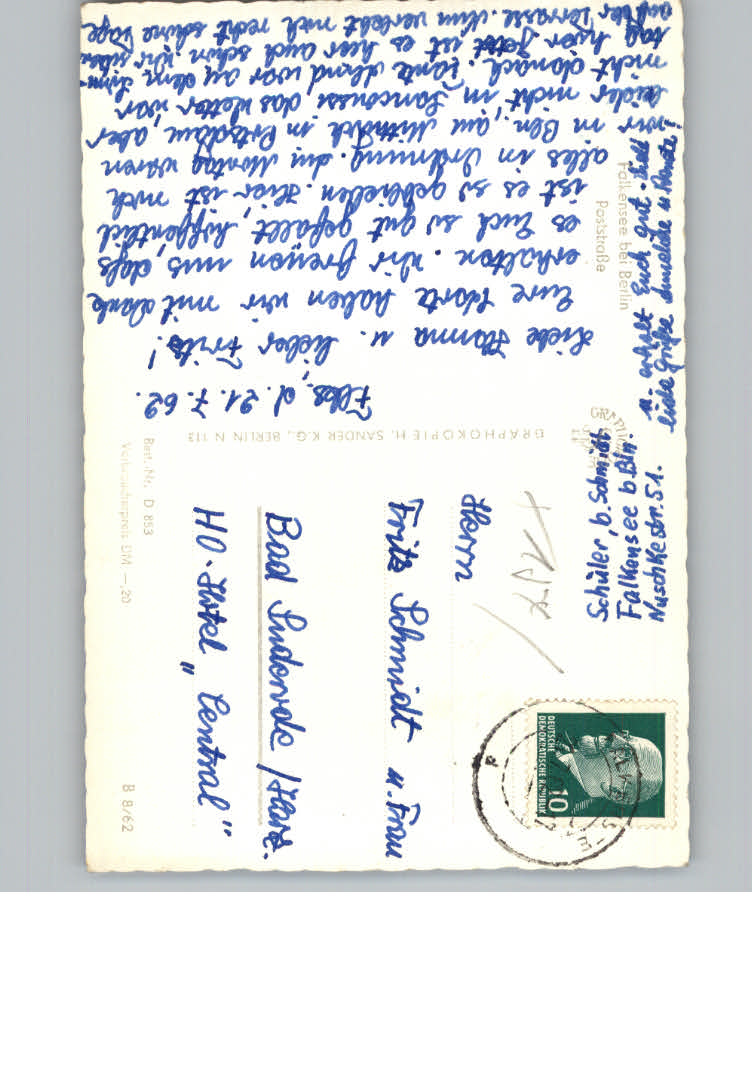 Flks., d. 21.7.62.
Liebe Hanna u. lieber Fritz!
Eure Karte haben wir mit Dank
erhalten. Wir freuen uns, daß
es Euch so gut gefällt, hoffentlich
ist es so geblieben. Hier ist noch
alles in Ordnung. Am Montag waren
wir in Bln., am Mittwoch in Potsdam, aber
leider nicht in Sanssouci das Wetter war
nicht danach. Tante war auf dem
tag hier. Jetzt ist es hier auch schön wir sitzen
auf der Terrasse. Nun verlebt noch recht schöne Tage
u. erholt Euch gut. Viele
liebe Grüße Anneliese u. Renate!
Falkensee bei Berlin
Poststraße
GRAPHOKOPIE H. SANDER K.G., BERLIN N 113
Best.-Nr. D 853
Verbraucherpreis DM -,20
B 8/62
Schüler, b. Schmidt
Falkensee b. Bln.
Nuschkestr. 51.
DEUTSCHE
DEMOKRATISCHE REPUBLIK
10
Herrn
Fritz Schmidt u. Frau
Bad Suderode /Harz.
HO-Hotel „Central"